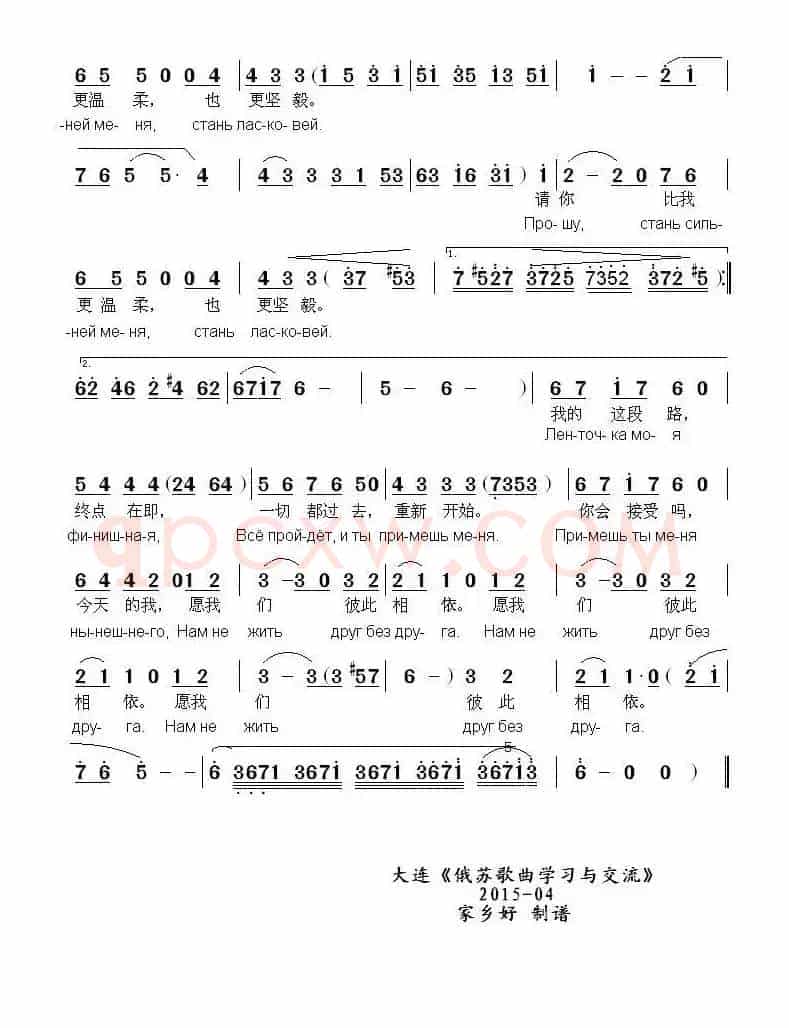 6 5 5 0 0 4 | 4 3 3 ( 1 5 3 1 | 5 1 3 5 1 3 5 1 | 1 - - 2 1 |
更温 柔, 也 更坚 毅。
-ней ме- ня, стань лас-ко- вей.
7 6 5 5· 4 | 4 3 3 3 1 5 3 | 6 3 1 6 3 1 ) 1 | 2 - 2 0 7 6
请 你 比我
Про- шу, стань силь-
6 5 5 0 0 4 | 4 3 3 ( 3 7 #5 3 | 1. 7 #5 2 7 3 7 2 5 7 3 5 2 3 7 2 #5 ) :||
更 温 柔, 也 更坚 毅。
-ней ме- ня, стань лас-ко-вей.
2. 6 2 4 6 2 #4 6 2 | 6 7 1 7 6 - | 5 - 6 - ) | 6 7 1 7 6 0
我的 这段 路,
Лен-точ- ка мо- я
5 4 4 4 ( 2 4 6 4 ) | 5 6 7 6 5 0 | 4 3 3 3 ( 7 3 5 3 ) | 6 7 1 7 6 0
终点 在即, 一切 都过 去, 重新 开始。 你会 接受 吗,
фи-ниш-на-я, Всё прой-дёт, и ты при-мешь ме-ня. При-мешь ты ме-ня
qpcxw.COM
6 4 4 2 0 1 2 | 3 - 3 0 3 2 | 2 1 1 0 1 2 | 3 - 3 0 3 2
今天 的我, 愿我 们 彼此 相 依。愿我 们 彼此
ны-неш-не-го, Нам не жить друг без дру- га. Нам не жить друг без
2 1 1 0 1 2 | 3 - 3 ( 3 #5 7 | 6 - ) 3 2 | 2 1 1· 0 ( 2 1
相 依。愿我 们 彼 此 相 依。
дру- га. Нам не жить друг без дру- га.
5
7 6 5 - - | 6 3671 3671 3671 3671 36713 | 6 - 0 0 ) ||
大连《俄苏歌曲学习与交流》
2015-04
家乡好 制谱